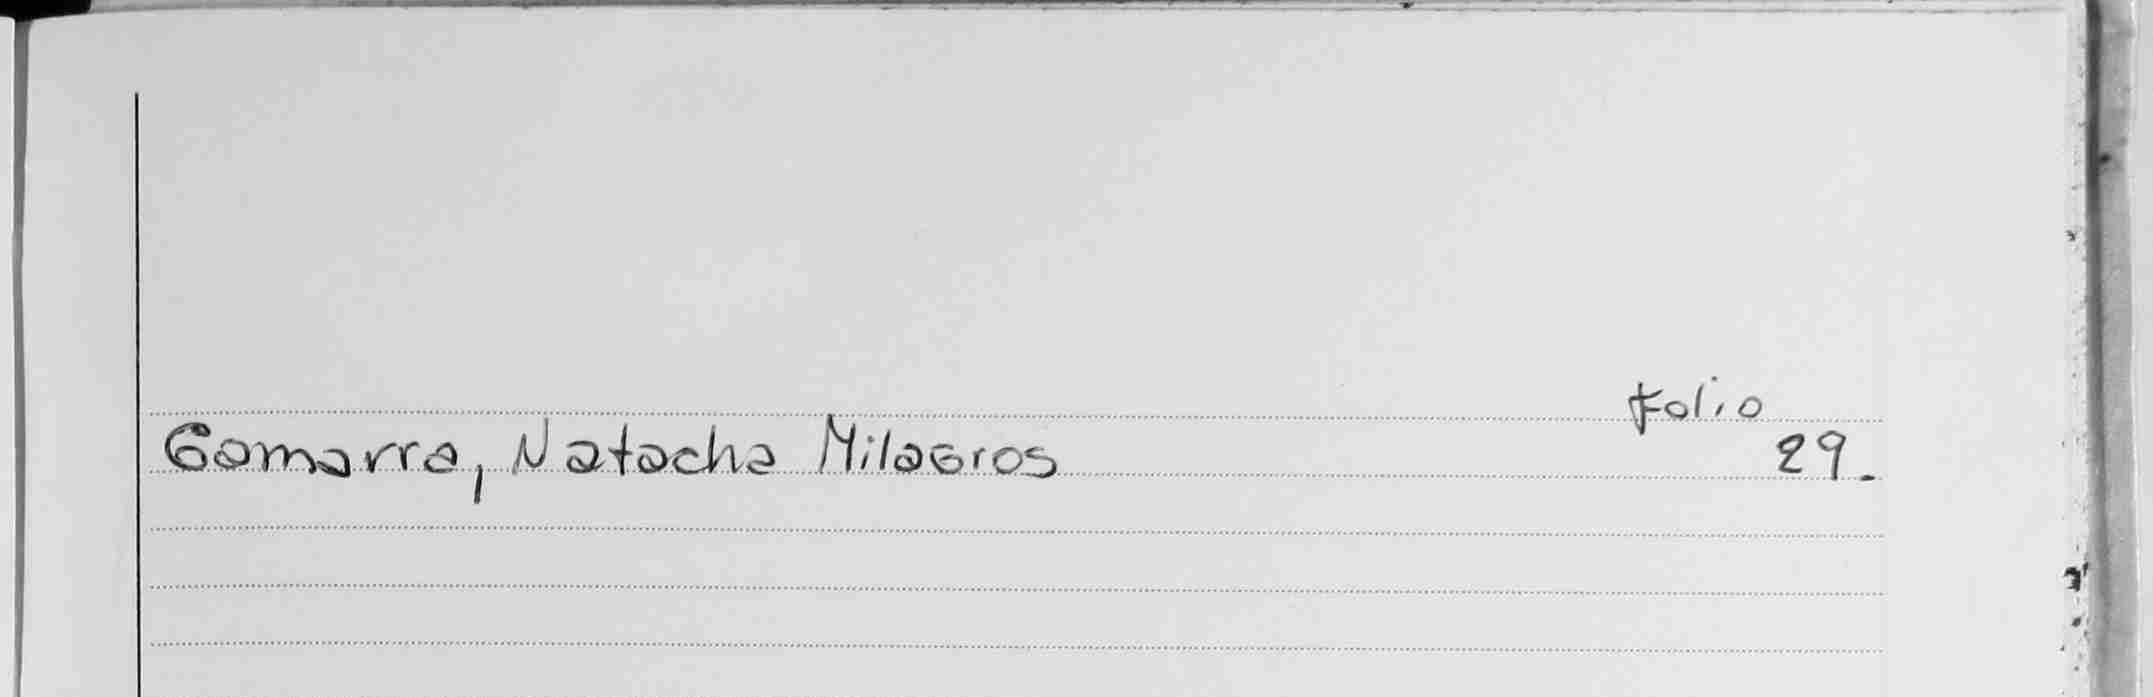 Folio
Gamarra, Natacha Milagros 29.